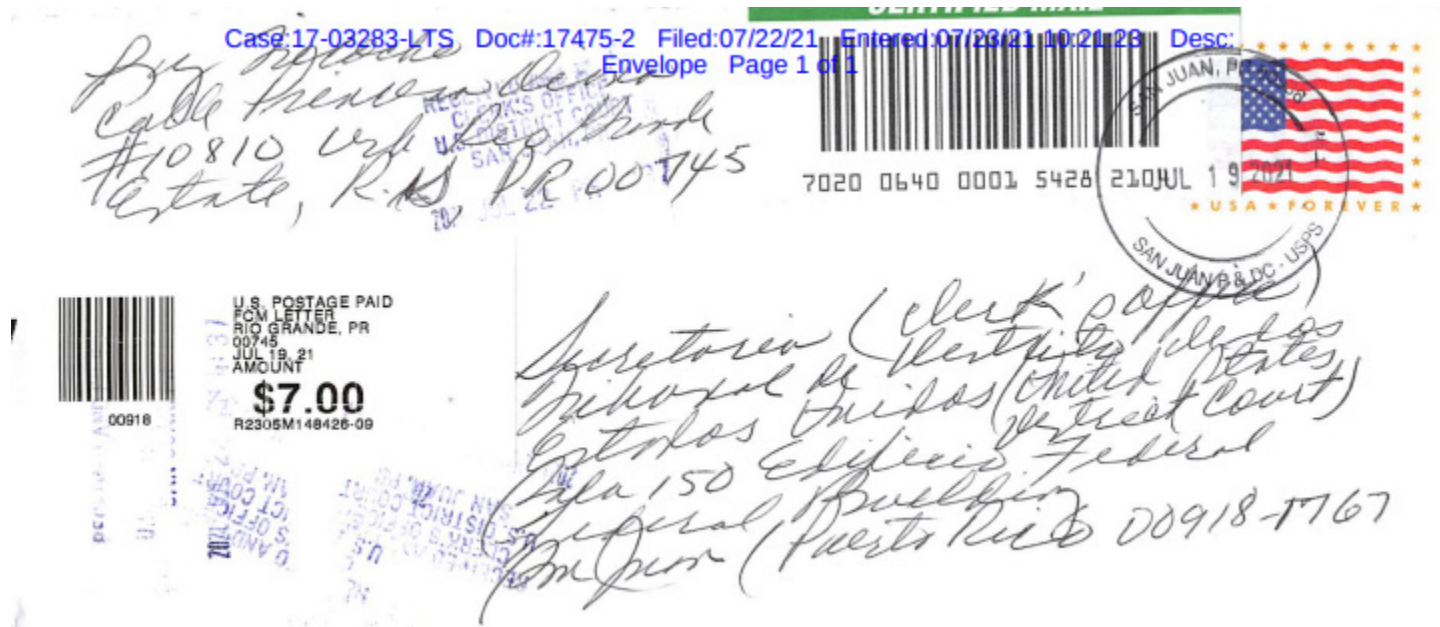 CERTIFIED MAIL
Case:17-03283-LTS Doc#:17475-2 Filed:07/22/21 Entered:07/23/21 10:21:23 Desc:
Envelope Page 1 of 1
Calle
#10810 Urb Rio Grande
Estate, R.G. PR 00745
CLERK'S OFFICE
U.S. DISTRICT COURT
SAN JUAN
JUL 22
7020 0640 0001 5428 2104
SAN JUAN, PR
JUL 19 2021
SAN JUAN P & DC - USPS
USA FOREVER
U.S. POSTAGE PAID
FCM LETTER
RIO GRANDE, PR
00745
JUL 19, 21
AMOUNT
$7.00
R2305M148426-09
00918
Secretaria (Clerk's office)
Tribunal de Distrito de los
Estados Unidos (United States
District Court)
Sala 150 Edificio Federal
(Federal Building)
San Juan (Puerto Rico 00918-1767